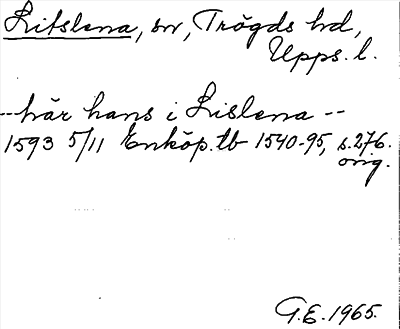 Litslena, sn, Trögds hd,
Upps. l.
-- här hans i Lislena --
1593 5/11 Enköp. tb 1540-95, s. 276.
orig.
G.E. 1965.